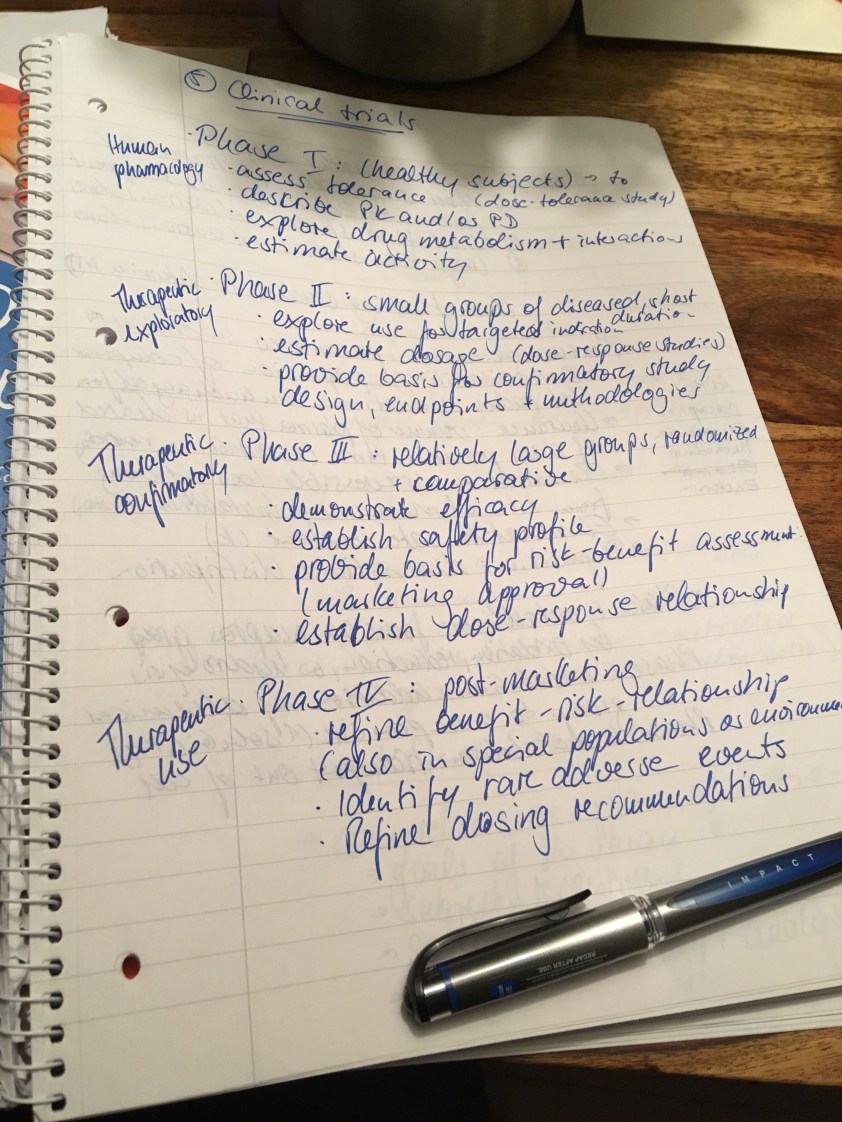 ⑤ Clinical trials
Human pharmacology
· Phase I : (healthy subjects) → to
· assess tolerance (dose-tolerance study)
· describe PK and/or PD
· explore drug metabolism + interactions
· estimate activity
Therapeutic exploratory
· Phase II : small groups of diseased, short duration
· explore use for targeted indication
· estimate dosage (dose-response studies)
· provide basis for confirmatory study
design, endpoints + methodologies
Therapeutic confirmatory
· Phase III : relatively large groups, randomized
+ comparative
· demonstrate efficacy
· establish safety profile
· provide basis for risk-benefit assessment
(marketing approval)
· establish dose-response relationship
Therapeutic use
· Phase IV : post-marketing
· refine benefit-risk-relationship
(also in special populations or environme
· Identify rare adverse events
· Refine dosing recommendations
IMPACT
RECAP AFTER USE